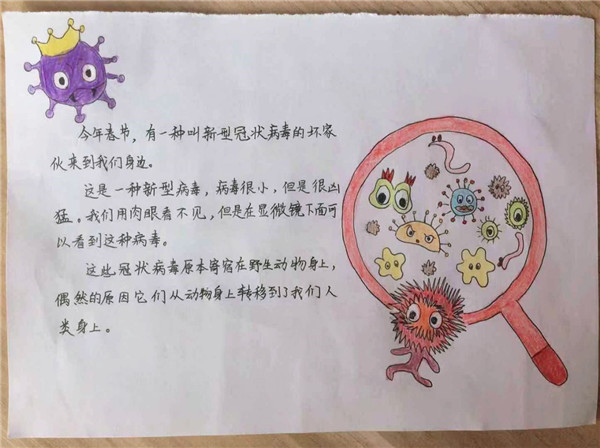 今年春节，有一种叫新型冠状病毒的坏家
伙来到我们身边。
这是一种新型病毒，病毒很小，但是很凶
猛。我们用肉眼看不见，但是在显微镜下面可
以看到这种病毒。
这些冠状病毒原本寄宿在野生动物身上，
偶然的原因它们从动物身上转移到了我们人
类身上。